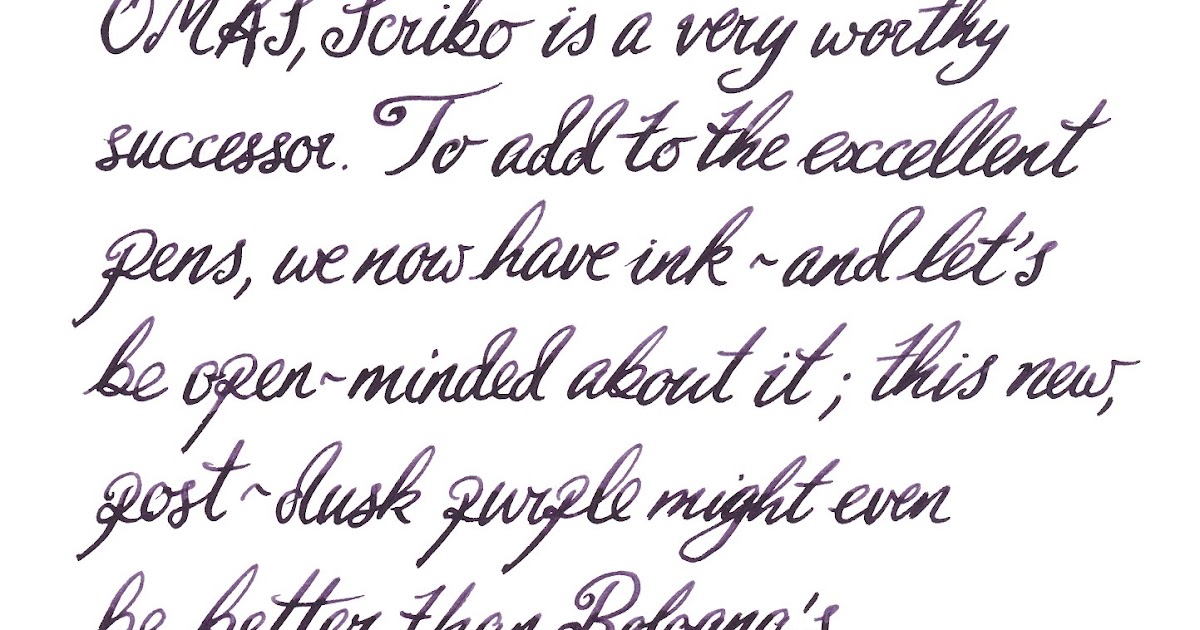 OMAS, Scribo is a very worthy
successor. To add to the excellent
pens, we now have ink ~ and let's
be open~minded about it; this new,
post~dusk purple might even
be better than Bologna's